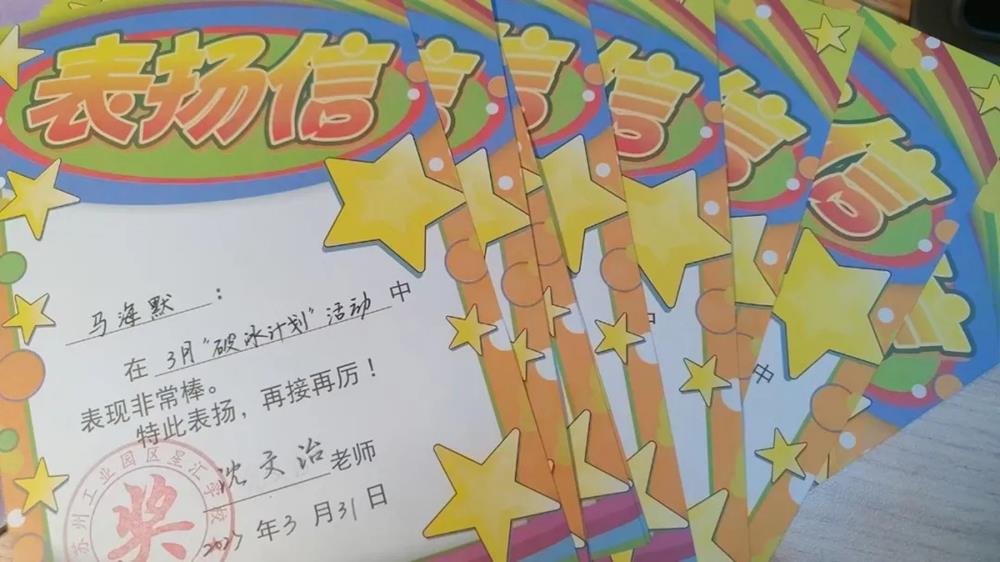 表扬信
马海默：
在3月“破冰计划”活动中
表现非常棒。
特此表扬，再接再厉！
沈文治老师
年3月31日
苏州工业园区星汇学校
奖
信
信
信
信
信
中
中